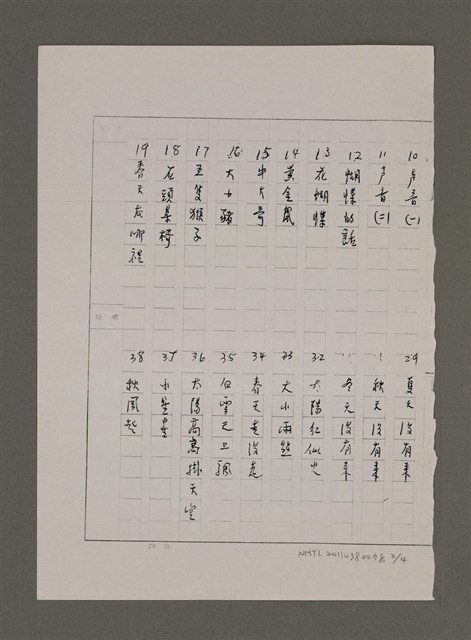 10 声音(一)
11 声音(二)
12 蝴蝶的話
13 花蝴蝶
14 黃金鼠
15 牛大哥
16 大小豬
17 五隻猴子
18 花頭桌椅
19 春天在哪裡
29 夏天沒有來
秋天沒有來
冬天沒有來
32 太陽紅似火
33 大小雨點
34 春天去沒走
35 白雲天上飄
36 太陽高高掛天空
37 小星星
38 秋風起
20×20
NMTL 2011038